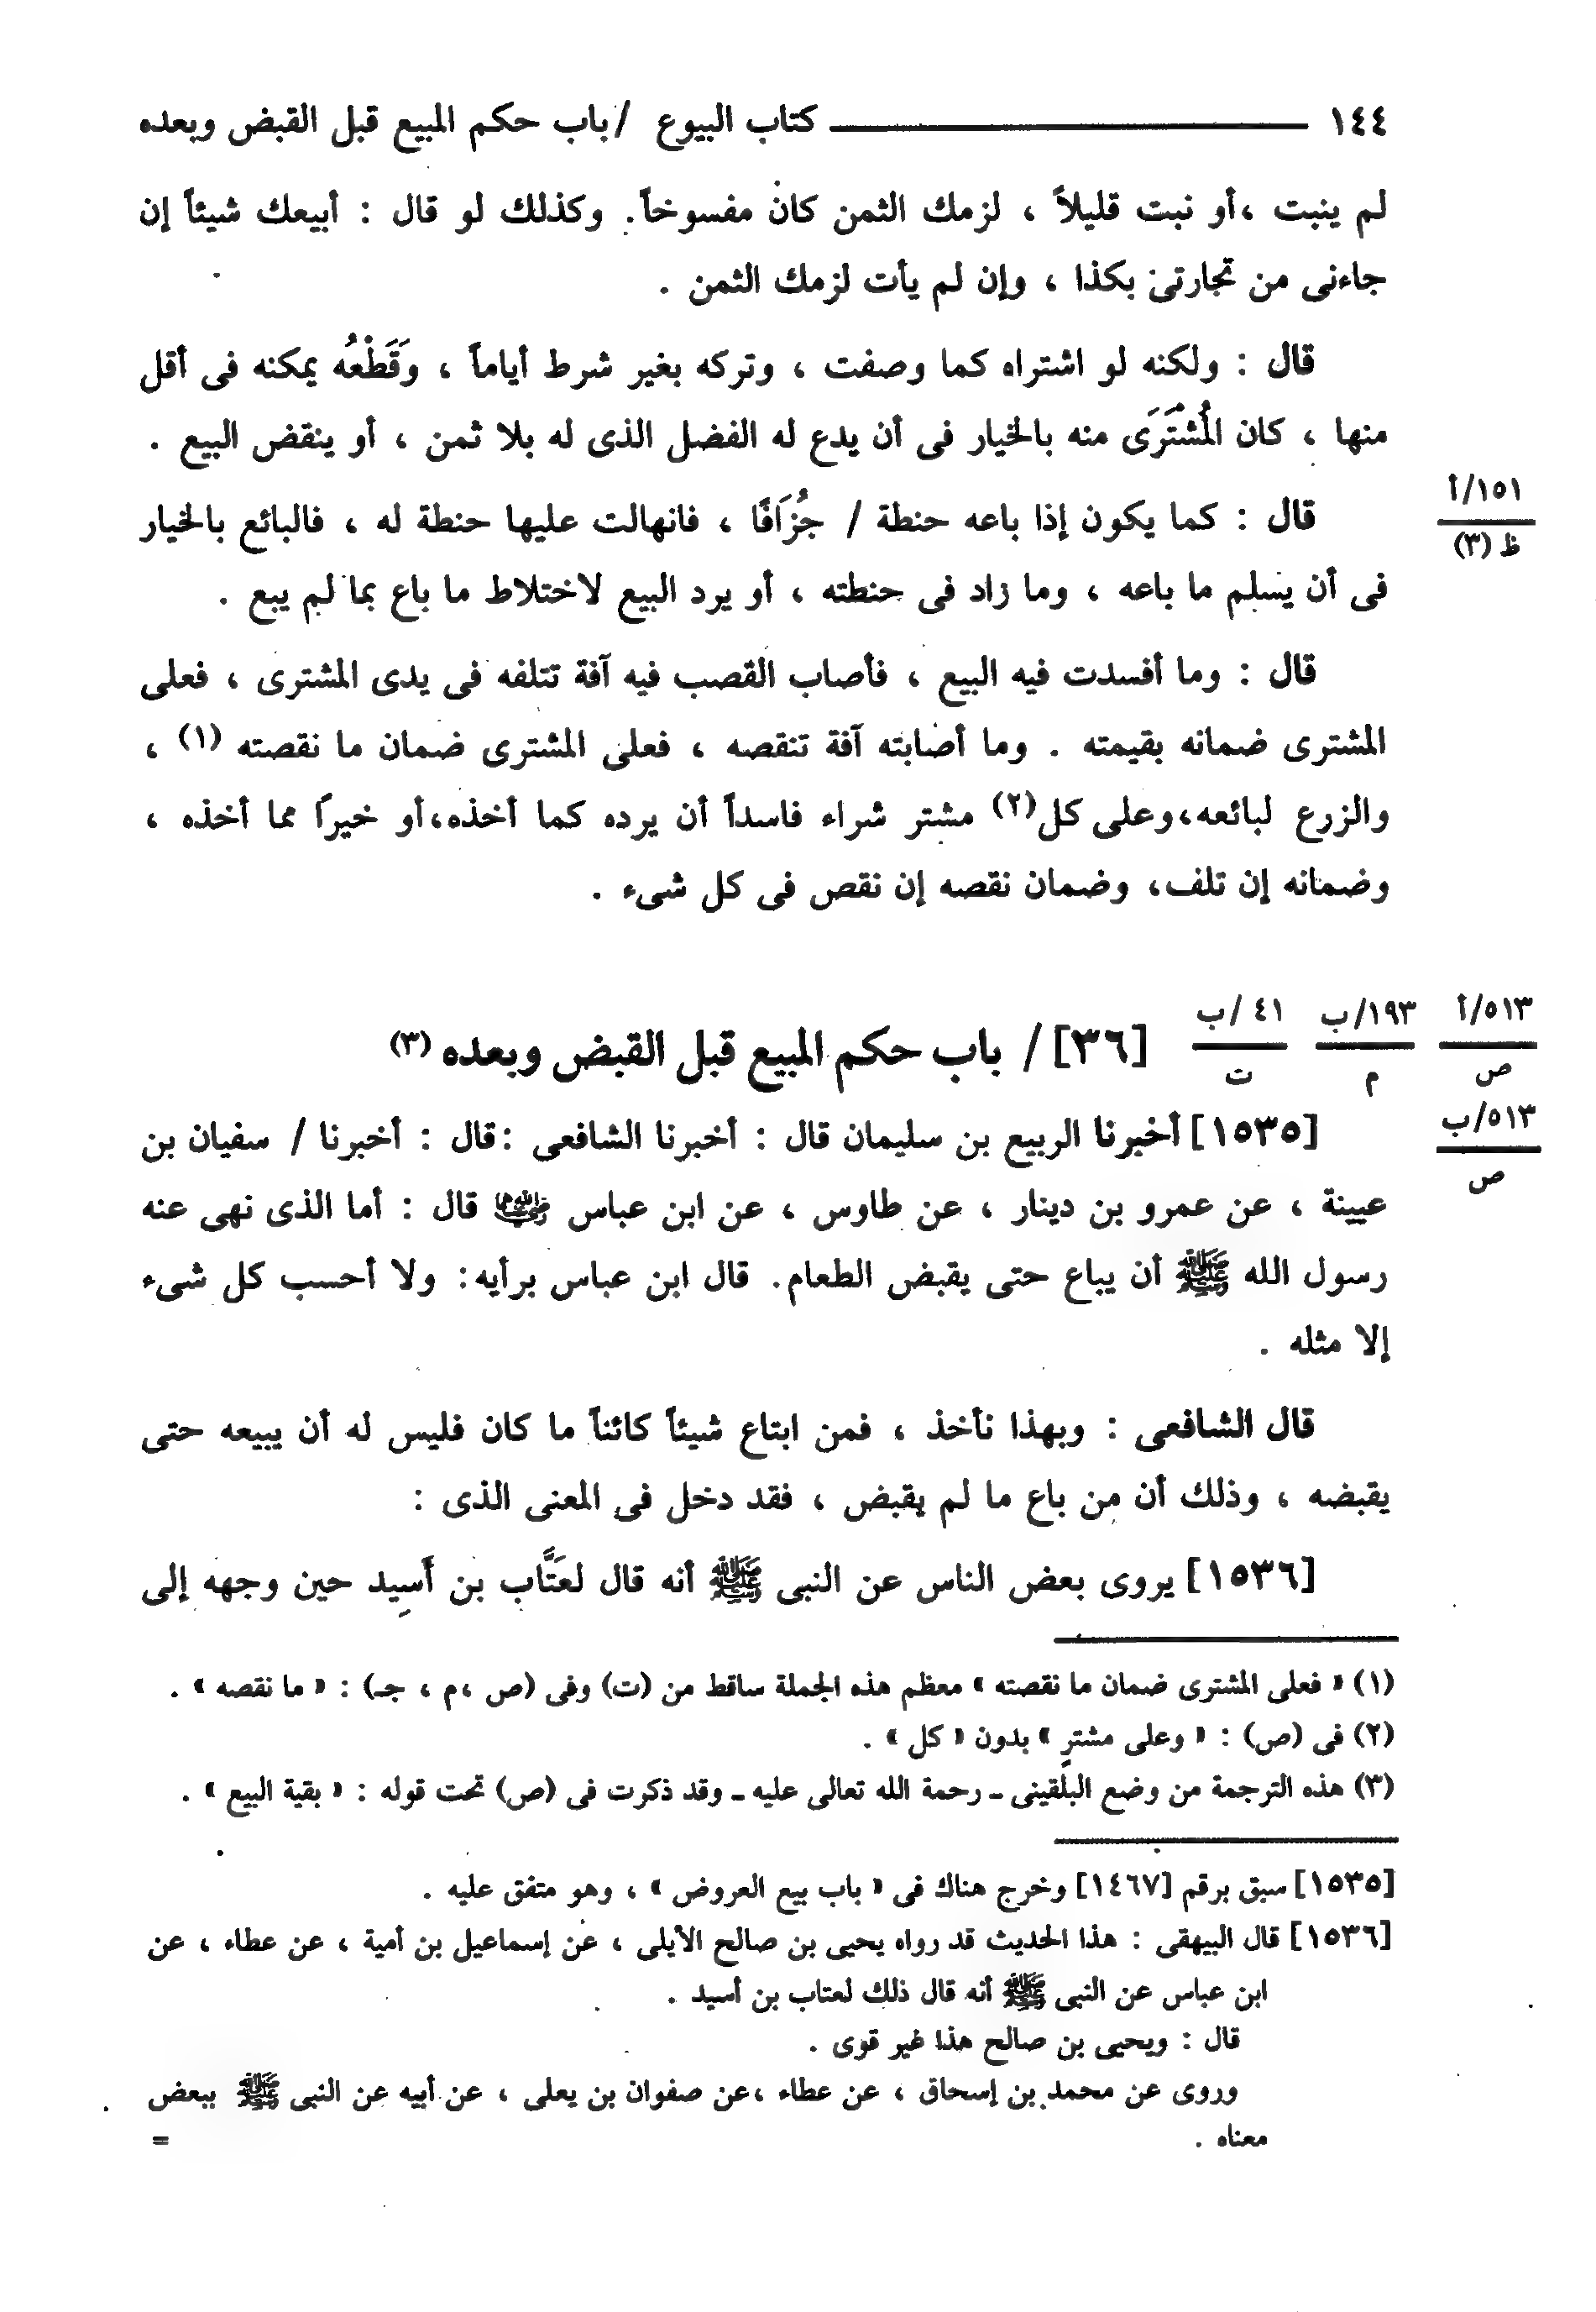 ١٤٤ ــــــــــ كتاب البيوع / باب حكم المبيع قبل القبض وبعده
لم ينبت ،أو نبت قليلاً ، لزمك الثمن كان مفسوخاً. وكذلك لو قال : أبيعك شيئاً إن
جاءنى من تجارتى بكذا ، وإن لم يأت لزمك الثمن .
قال : ولكنه لو اشتراه كما وصفت ، وتركه بغير شرط أياماً ، وَقَطْعُه يمكنه فى أقل
منها ، كان المُشْتَرَى منه بالخيار فى أن يدع له الفضل الذى له بلا ثمن ، أو ينقض البيع .
١٥١/أ
ظ (٣)
قال : كما يكون إذا باعه حنطة / جُزَافًا ، فانهالت عليها حنطة له ، فالبائع بالخيار
فى أن يسلم ما باعه ، وما زاد فى حنطته ، أو يرد البيع لاختلاط ما باع بما لم يبع .
قال : وما أفسدت فيه البيع ، فأصاب القصب فيه آفة تتلفه فى يدى المشترى ، فعلى
المشترى ضمانه بقيمته . وما أصابته آفة تنقصه ، فعلى المشترى ضمان ما نقصته (١) ،
والزرع لبائعه،وعلى كل(٢) مشتر شراء فاسداً أن يرده كما أخذه،أو خيراً مما أخذه ،
وضمانه إن تلف، وضمان نقصه إن نقص فى كل شىء .
٥١٣/أ
ص
١٩٣/ب
م
٤١ /ب
ت
[٣٦] / باب حكم المبيع قبل القبض وبعده (٣)
٥١٣/ب
ص
[١٥٣٥] أخبرنا الربيع بن سليمان قال : أخبرنا الشافعى :قال : أخبرنا / سفيان بن
عيينة ، عن عمرو بن دينار ، عن طاوس ، عن ابن عباس رضي الله عنهما قال : أما الذى نهى عنه
رسول الله ﷺ أن يباع حتى يقبض الطعام. قال ابن عباس برأيه: ولا أحسب كل شىء
إلا مثله .
قال الشافعى : وبهذا نأخذ ، فمن ابتاع شيئاً كائناً ما كان فليس له أن يبيعه حتى
يقبضه ، وذلك أن من باع ما لم يقبض ، فقد دخل فى المعنى الذى :
[١٥٣٦] يروى بعض الناس عن النبى ﷺ أنه قال لعَتَّاب بن أَسِيد حين وجهه إلى
(١) « فعلى المشترى ضمان ما نقصته » معظم هذه الجملة ساقط من (ت) وفى (ص ،م ، جـ) : « ما نقصه » .
(٢) فى (ص) : « وعلى مشترٍ » بدون « كل » .
(٣) هذه الترجمة من وضع البلقينى ـ رحمة الله تعالى عليه ـ وقد ذكرت فى (ص) تحت قوله : « بقية البيع » .
[١٥٣٥] سبق برقم [١٤٦٧] وخرج هناك فى « باب بيع العروض » ، وهو متفق عليه .
[١٥٣٦] قال البيهقى : هذا الحديث قد رواه يحيى بن صالح الأيلى ، عن إسماعيل بن أمية ، عن عطاء ، عن
ابن عباس عن النبى ﷺ أنه قال ذلك لعتاب بن أسيد .
قال : ويحيى بن صالح هذا غير قوى .
وروى عن محمد بن إسحاق ، عن عطاء ،عن صفوان بن يعلى ، عن أبيه عن النبى ﷺ ببعض
معناه .
=